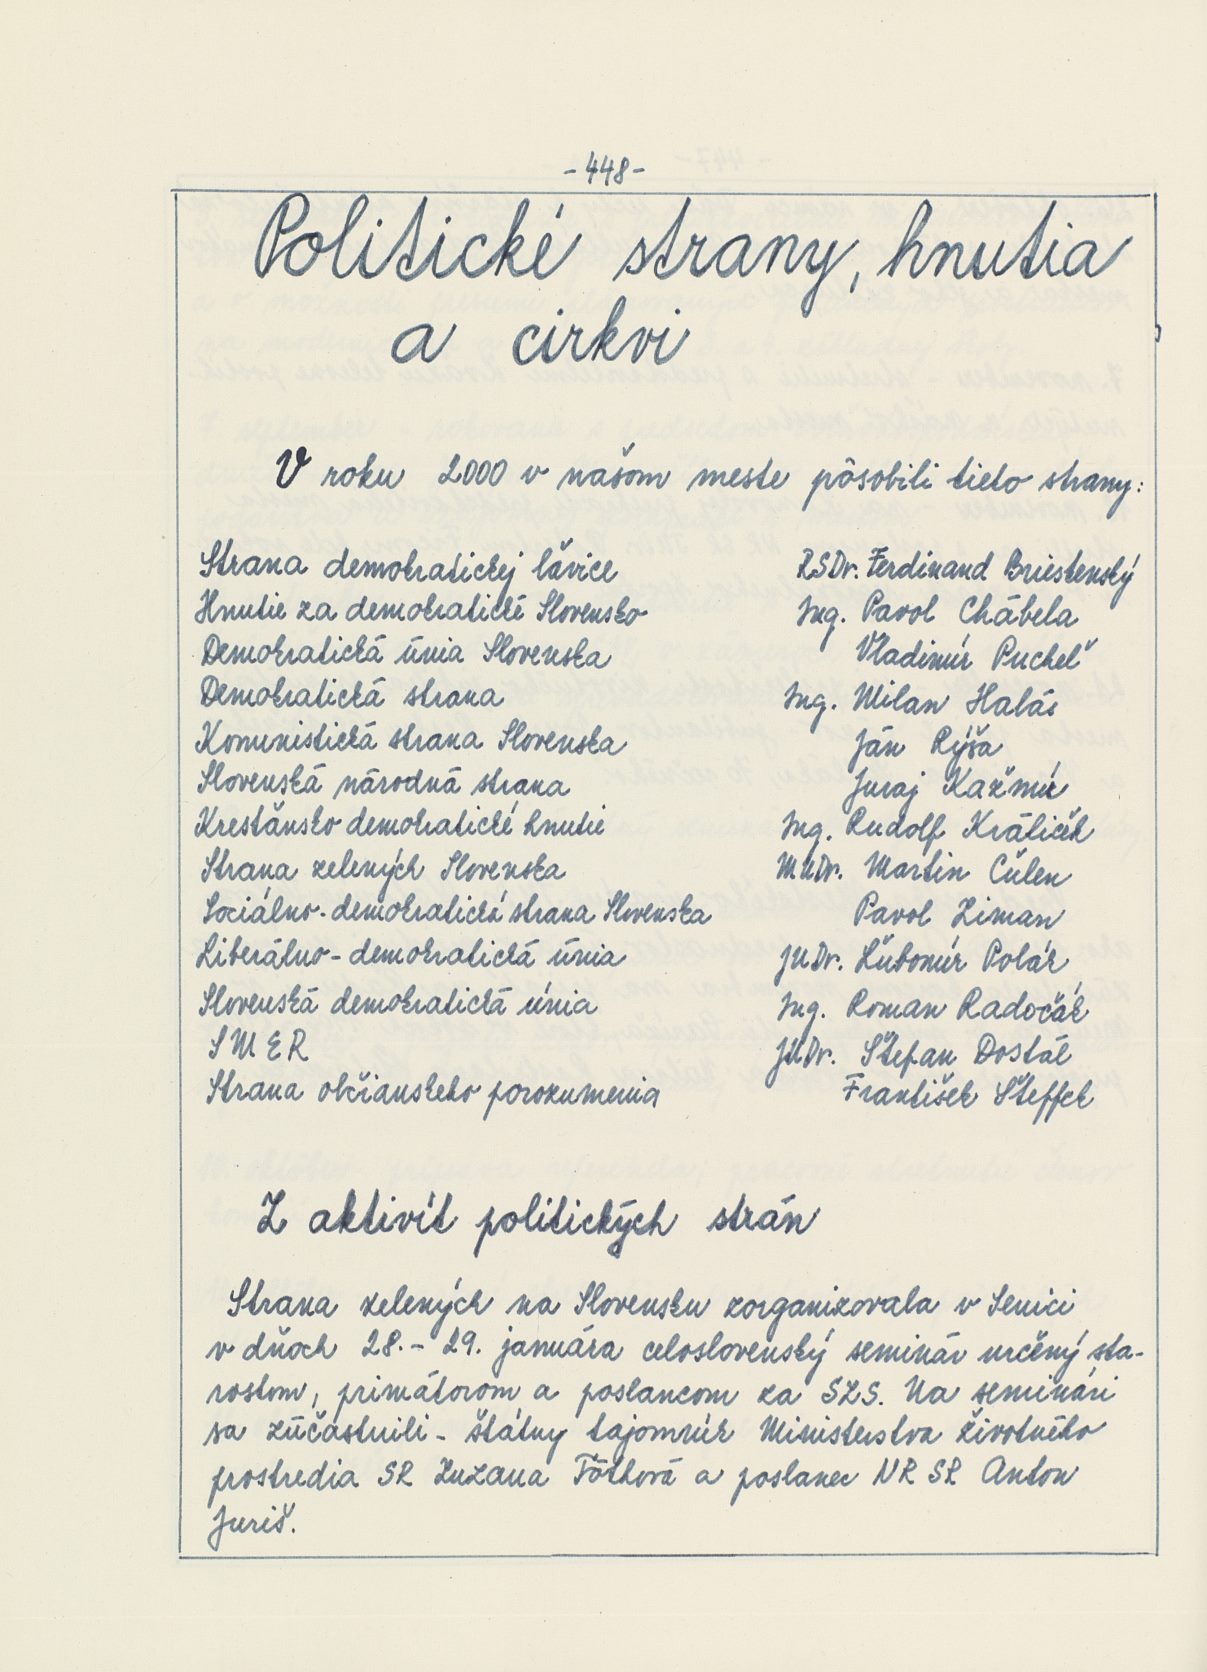 -448-
Politické strany, hnutia
a cirkvi
V roku 2000 v našom meste pôsobili tieto strany:
Strana demokratickej ľavice RSDr. Ferdinand Briestenský
Hnutie za demokratické Slovensko Ing. Pavol Chábela
Demokratická únia Slovenska Vladimír Puchel
Demokratická strana Ing. Milan Halás
Komunistická strana Slovenska Ján Rýša
Slovenská národná strana Juraj Kažmír
Kresťansko demokratické hnutie Ing. Rudolf Králiček
Strana zelených Slovenska MUDr. Martin Čulen
Sociálno-demokratická strana Slovenska Pavol Ziman
Liberálno-demokratická únia JUDr. Ľubomír Polák
Slovenská demokratická únia Ing. Roman Radočák
SMER JUDr. Štefan Dostál
Strana občianskeho porozumenia František Šteffek
Z aktivít politických strán
Strana zelených na Slovensku zorganizovala v Senici
v dňoch 28.-29. januára celoslovenský seminár určený sta-
rostom, primátorom a poslancom za SZS. Na seminári
sa zúčastnili - štátny tajomník Ministerstva životného
prostredia SR Zuzana Tóthová a poslanec NR SR Anton
Juriš.